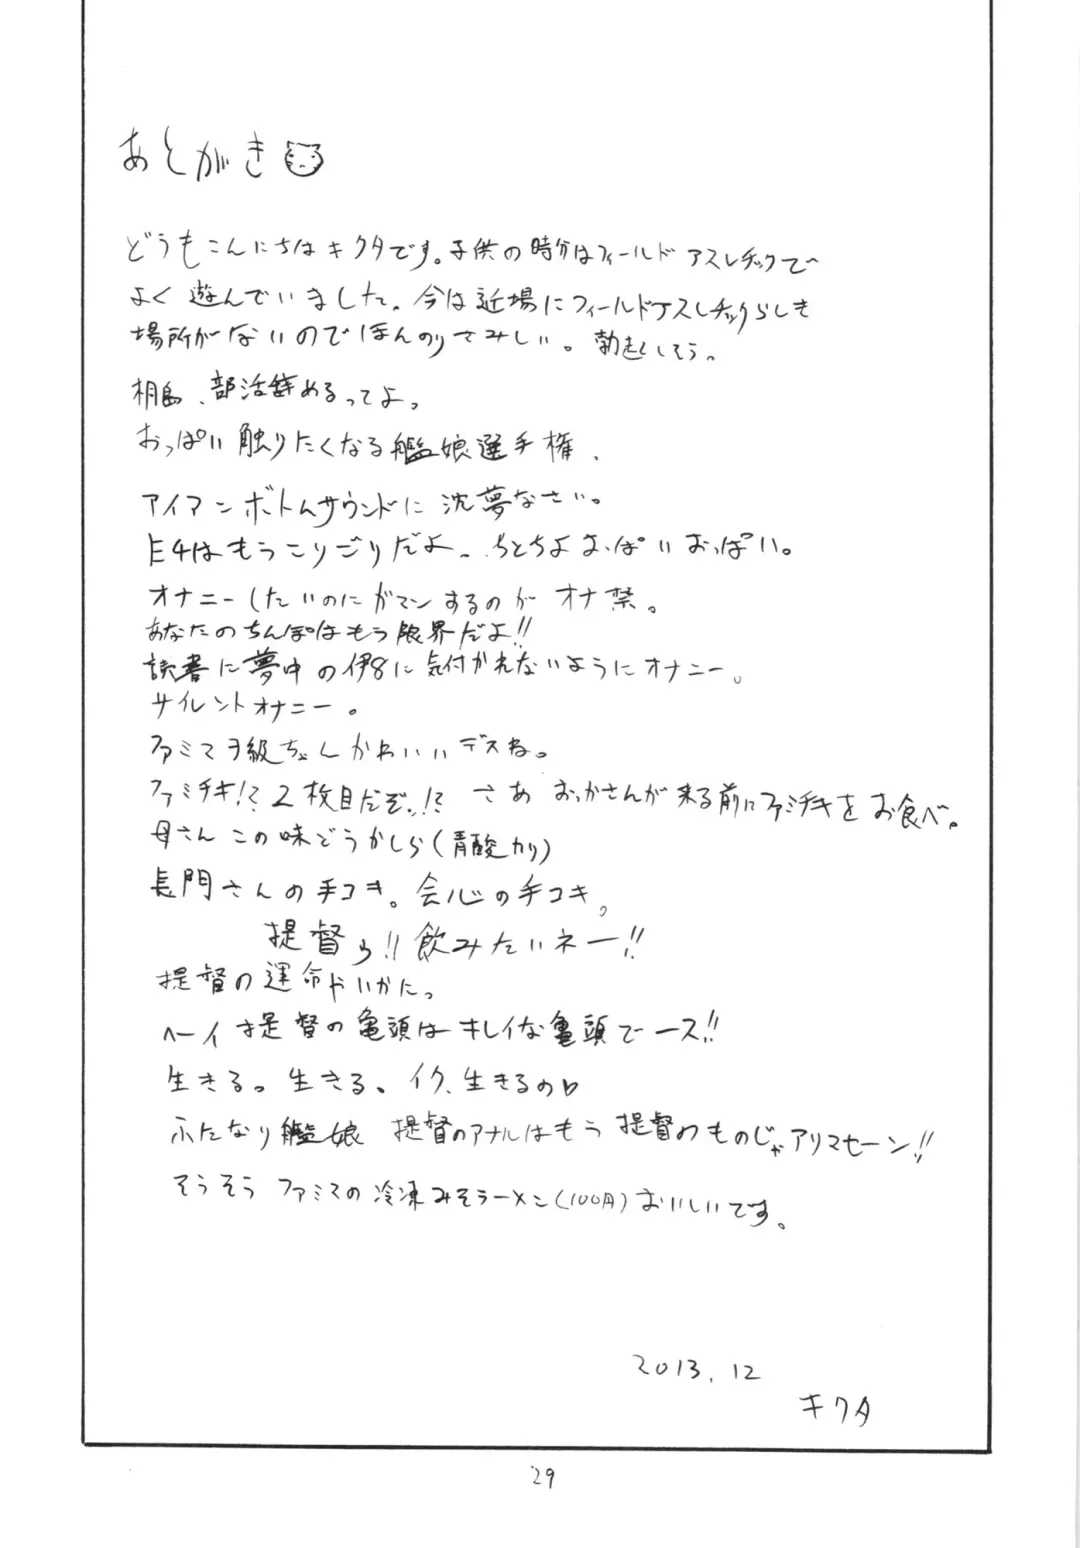 あとがき
どうもこんにちはキクタです。子供の時分はフィールドアスレチックで
よく遊んでいました。今は近場にフィールドアスレチックらしき
場所がないのでほんのりさみしい。勃起しそう。
桐島、部活辞めるってよ。
おっぱい触りたくなる艦娘選手権、
アイアンボトムサウンドに沈夢なさい。
E4はもうこりごりだよ。ちとちよおっぱいおっぱい。
オナニーしたいのにガマンするのがオナ禁。
あなたのちんぽはもう限界だよ!!
読書に夢中の伊8に気付かれないようにオナニー。
サイレントオナニー。
ファミマヲ級ちゃんかわいいデスね。
ファミチキ!? 2枚目だぞ!!? さあ おっかさんが来る前にファミチキをお食べ。
母さんこの味どうかしら(青酸カリ)
長門さんの手コキ。会心の手コキ。
提督ゥ!! 飲みたいネー!!
提督の運命やいかに。
ヘーイ提督の亀頭はキレイな亀頭でース!!
生きる。生きる。イク、生きるの♡
ふたなり艦娘 提督のアナルはもう提督のものじゃアリマセーン!!
そうそう ファミマの冷凍みそラーメン(100円)おいしいです。
2013.12
キクタ
29